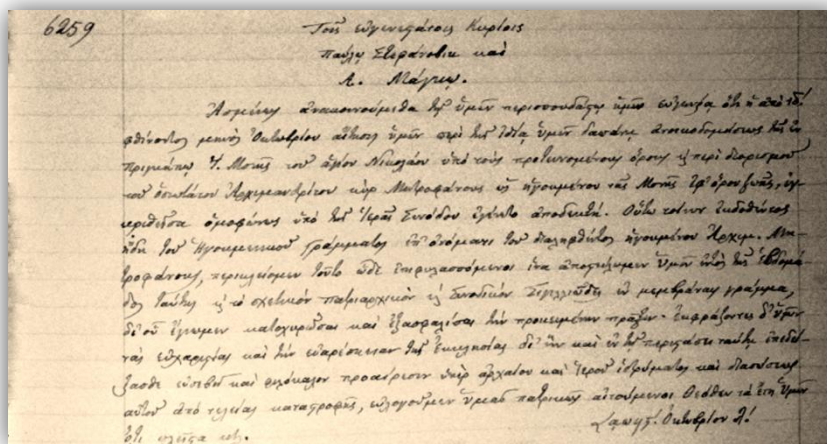 6259
Τοῖς εὐγενεστάτοις Κυρίοις
Παύλῳ Στεφάνοβικ καὶ
Α. Μάγκῳ.
Ἀσμένως ἀνακοινούμεθα τῇ ὑμῶν περισπουδάστῳ ἡμῖν εὐγενείᾳ ὅτι ἡ ἀπὸ
φθίνοντος μηνὸς Ὀκτωβρίου αἴτησις ὑμῶν περὶ τῆς ἰδίᾳ ὑμῶν δαπάνῃ ἀνοικοδομήσεως τῆς ἐν
Πριγκήπῳ Ἱ. Μονῆς τοῦ ἁγίου Νικολάου ὑπὸ τοὺς προτεινομένους ὅρους καὶ περὶ διορισμοῦ
τοῦ ὁσιωτάτου Ἀρχιμανδρίτου κὺρ Μητροφάνους ὡς ἡγουμένου τῆς Μονῆς ἐφ' ὅρου ζωῆς, ἐγ-
κριθεῖσα ὁμοφώνως ὑπὸ τῆς Ἱερᾶς Συνόδου ἐγένετο ἀποδεκτή. Οὕτω τοίνυν ἐκδοθέντος
ἤδη τοῦ Ἡγουμενικοῦ γράμματος ἐπ' ὀνόματι τοῦ διαληφθέντος ἡγουμένου Ἀρχιμ. Μη-
τροφάνους, περικλείομεν τοῦτο ὧδε ἐπιφυλασσόμενοι ἵνα ἀποστείλωμεν ὑμῖν ἐντὸς τῆς ἑβδομά-
δος ταύτης καὶ τὸ σχετικὸν πατριαρχικὸν καὶ Συνοδικὸν Σιγιλλιῶδες ἐν μεμβράναις γράμμα,
δι' οὗ ἔγνωμεν κατοχυρῶσαι καὶ ἐξασφαλίσαι τὴν προκειμένην πρᾶξιν. Ἐκφράζοντες δ' ὑμῖν
τὰς εὐχαριστίας καὶ τὴν εὐαρέσκειαν τῆς Ἐκκλησίας δι' ἣν καὶ ἐν τῇ περιστάσει ταύτῃ ἐπεδεί-
ξασθε εὐσεβῆ καὶ φιλόκαλον προαίρεσιν ὑπὲρ ἀρχαίου καὶ ἱεροῦ ἱδρύματος καὶ διασώσεως
αὐτοῦ ἀπὸ τελείας καταστροφῆς, εὐλογοῦμεν ὑμᾶς πατρικῶς αἰτούμενοι Θεόθεν τὰ ἔτη ὑμῶν
ὅτι πλεῖστα κτλ.
Ὀκτωβρίου λ!